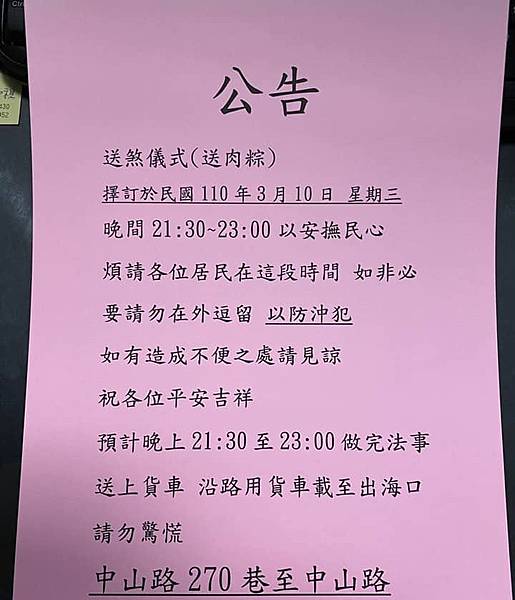 公告
送煞儀式(送肉粽)
擇訂於民國 110 年 3 月 10 日 星期三
晚間 21:30~23:00 以安撫民心
煩請各位居民在這段時間 如非必
要請勿在外逗留 以防沖犯
如有造成不便之處請見諒
祝各位平安吉祥
預計晚上 21:30 至 23:00 做完法事
送上貨車 沿路用貨車載至出海口
請勿驚慌
中山路 270 巷至中山路